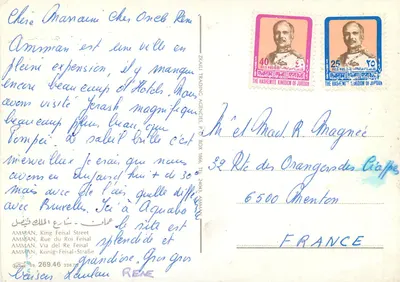 Chère Marraine Cher Oncle René
Amman est une ville en
pleine expension, il y manque
encore beaucoup et Hotels. Nous
avons visité Jerash magnifique
beaucoup plus beau, que
Pompei. Le soleil brille c'est
merveilleux je crois que nous
avons eu aujourd'hui + de 30°
mais avec de l'air, quelle diff
avec Bruxelles. Ici à Aquaba
le site est
splendide et
grandiose. Gros gros
baisers
RENE
عمان - شارع الملك فيصل
AMMAN, King Feisal Street
AMMAN, Rue du Roi Feisal
AMMAN, Via del Re Feisal
AMMAN, König-Feisal-Straße
269.46
40
THE HASHEMITE KINGDOM OF JORDAN
25 ٢٥
THE HASHEMITE KINGDOM OF JORDAN
Mr et Mad. R. Magnée
32 Rte des Orangers des Ciappes
6500 Menton
FRANCE